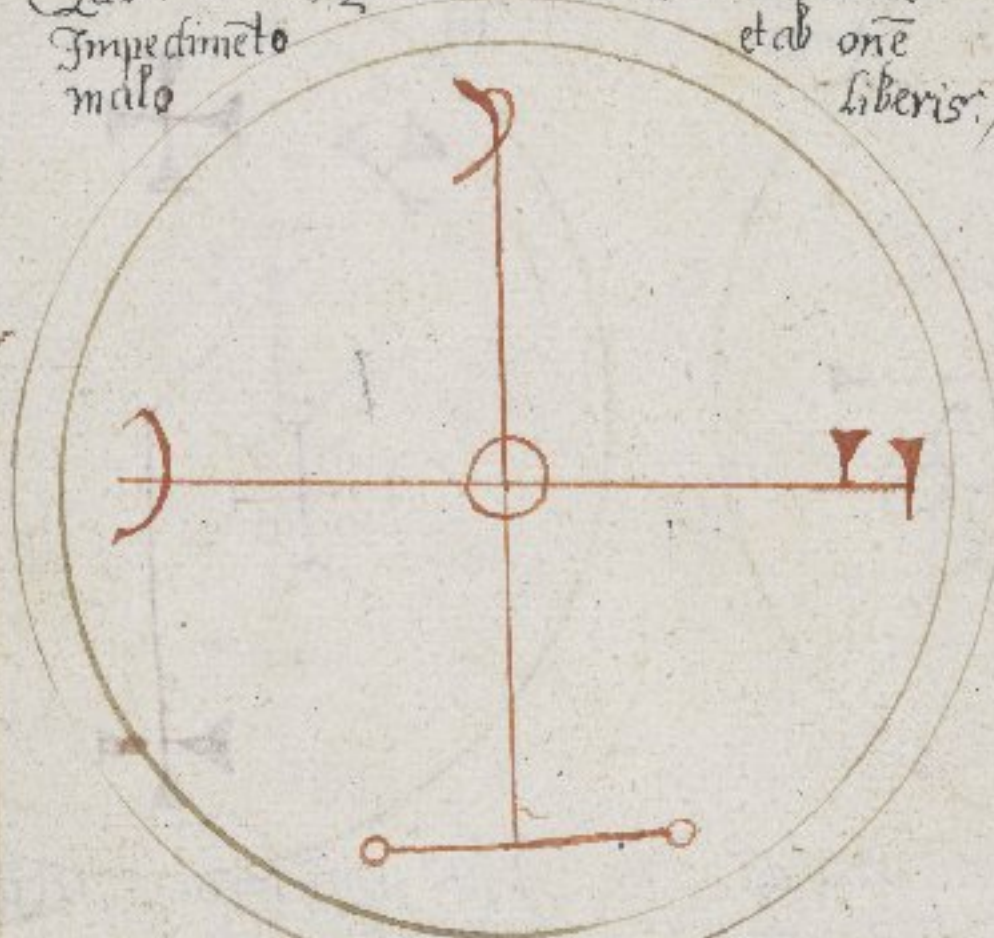 Impedimēto
malo
et ab onē
liberis: